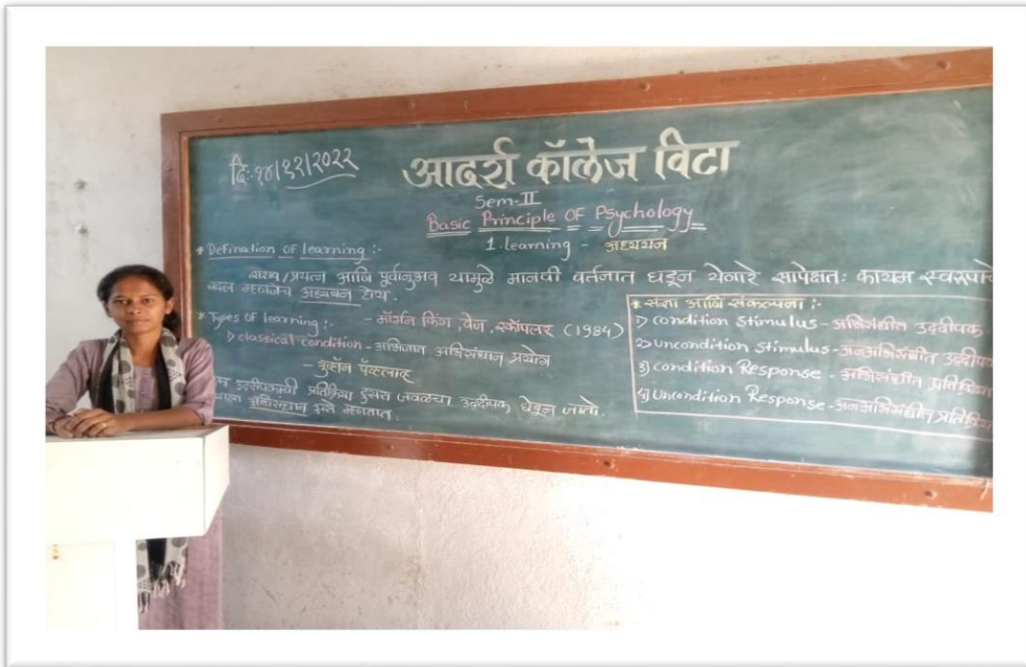 दि:-१८/१२/२०२२
आदर्श कॉलेज विटा
Sem-II
Basic Principle OF Psychology
1. learning - अध्ययन
* Defination OF learning :-
सराव/प्रयत्न आणि पूर्वानुभव यामुळे मानवी वर्तनात घडून येणारे सापेक्षतः कायम स्वरूपाचे
बदल म्हणजेच अध्ययन होय.
- मॉर्गन किंग, वेज, स्कॉपलर (1984)
* Types of learning :-
1) classical condition - अभिजात अभिसंधान प्रयोग
- इव्हॉन पॅव्हलाव्ह
उद्दीपकाची प्रतिक्रिया दुसरा जवळचा उद्दीपक घेवून जातो.
अभिसंधान असे म्हणतात.
* संज्ञा आणि संकल्पना :-
1) condition stimulus - अभिसंधीत उद्दीपक
2) Uncondition stimulus - अनअभिसंधीत उद्दीपक
3) condition Response - अभिसंधीत प्रतिक्रिया
4) Uncondition Response - अनअभिसंधीत प्रतिक्रिया